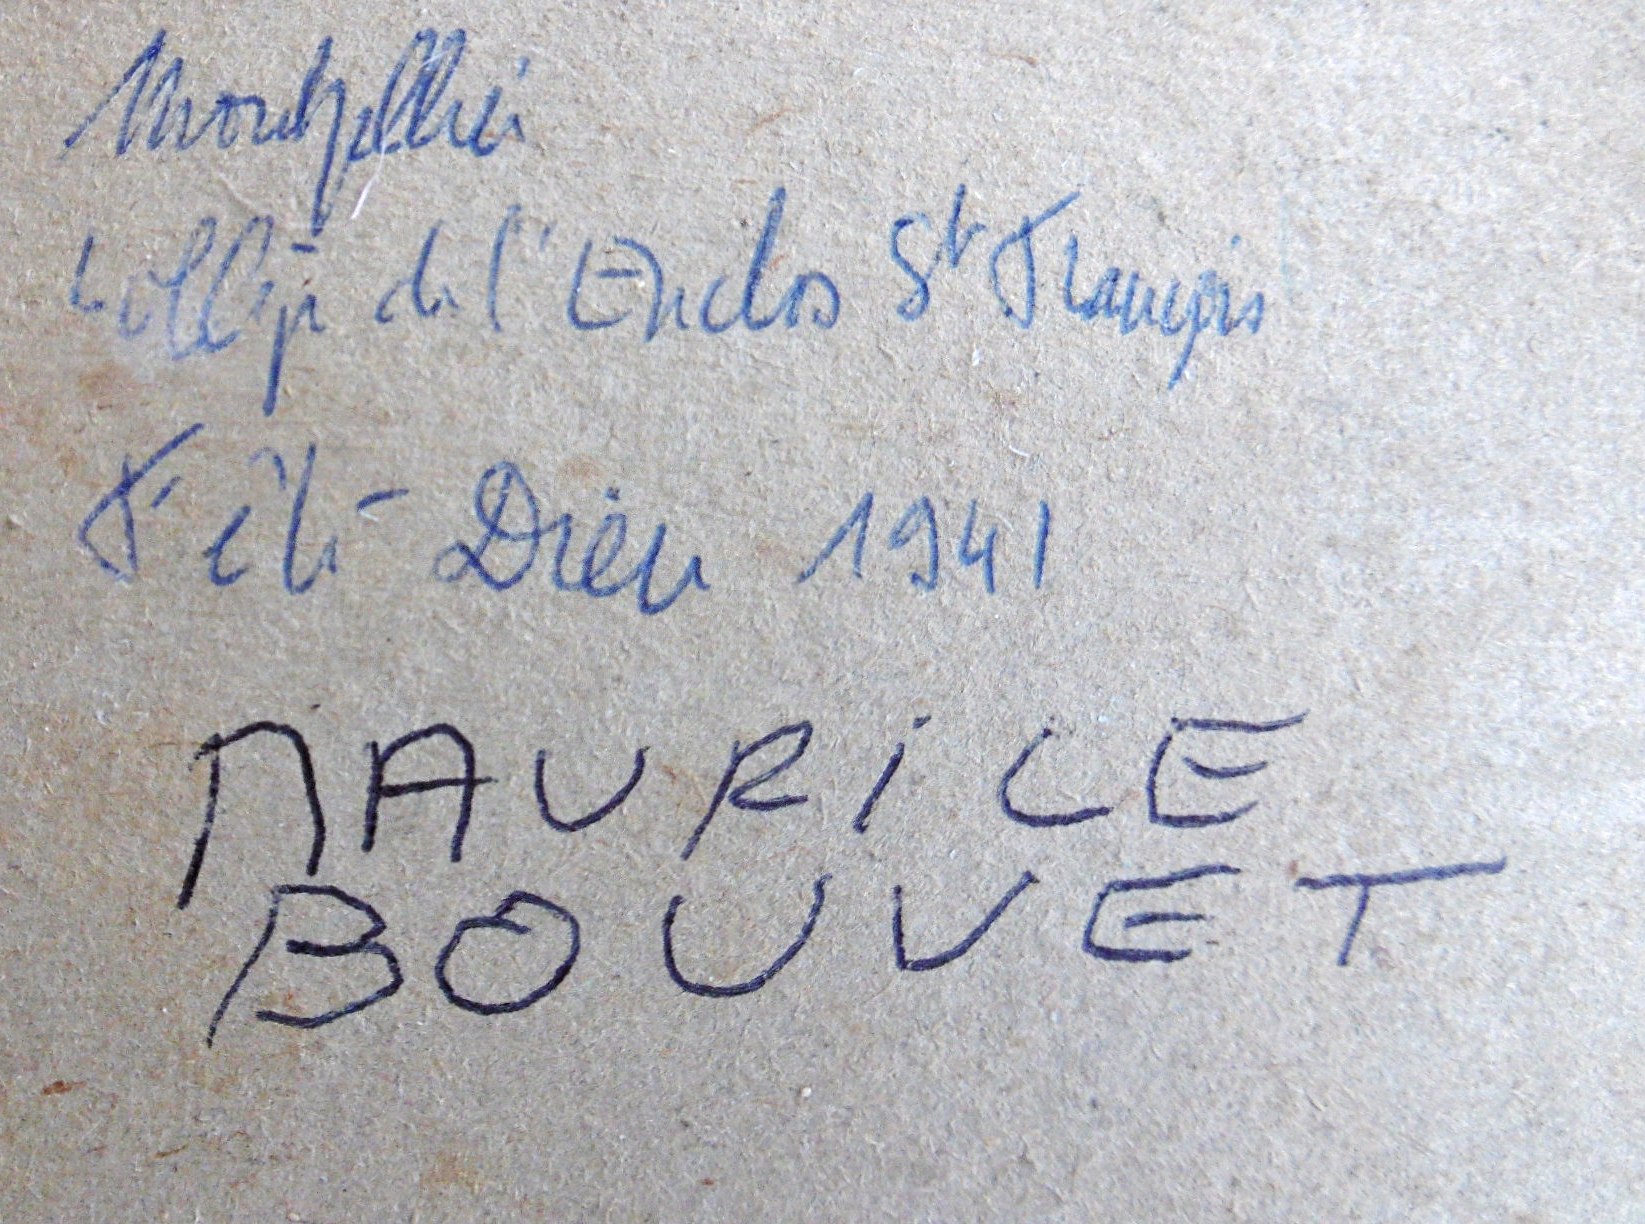 Montpellier
Collège de l'Enclos St François
Fête Dieu 1941
MAURiCE
BOUVET